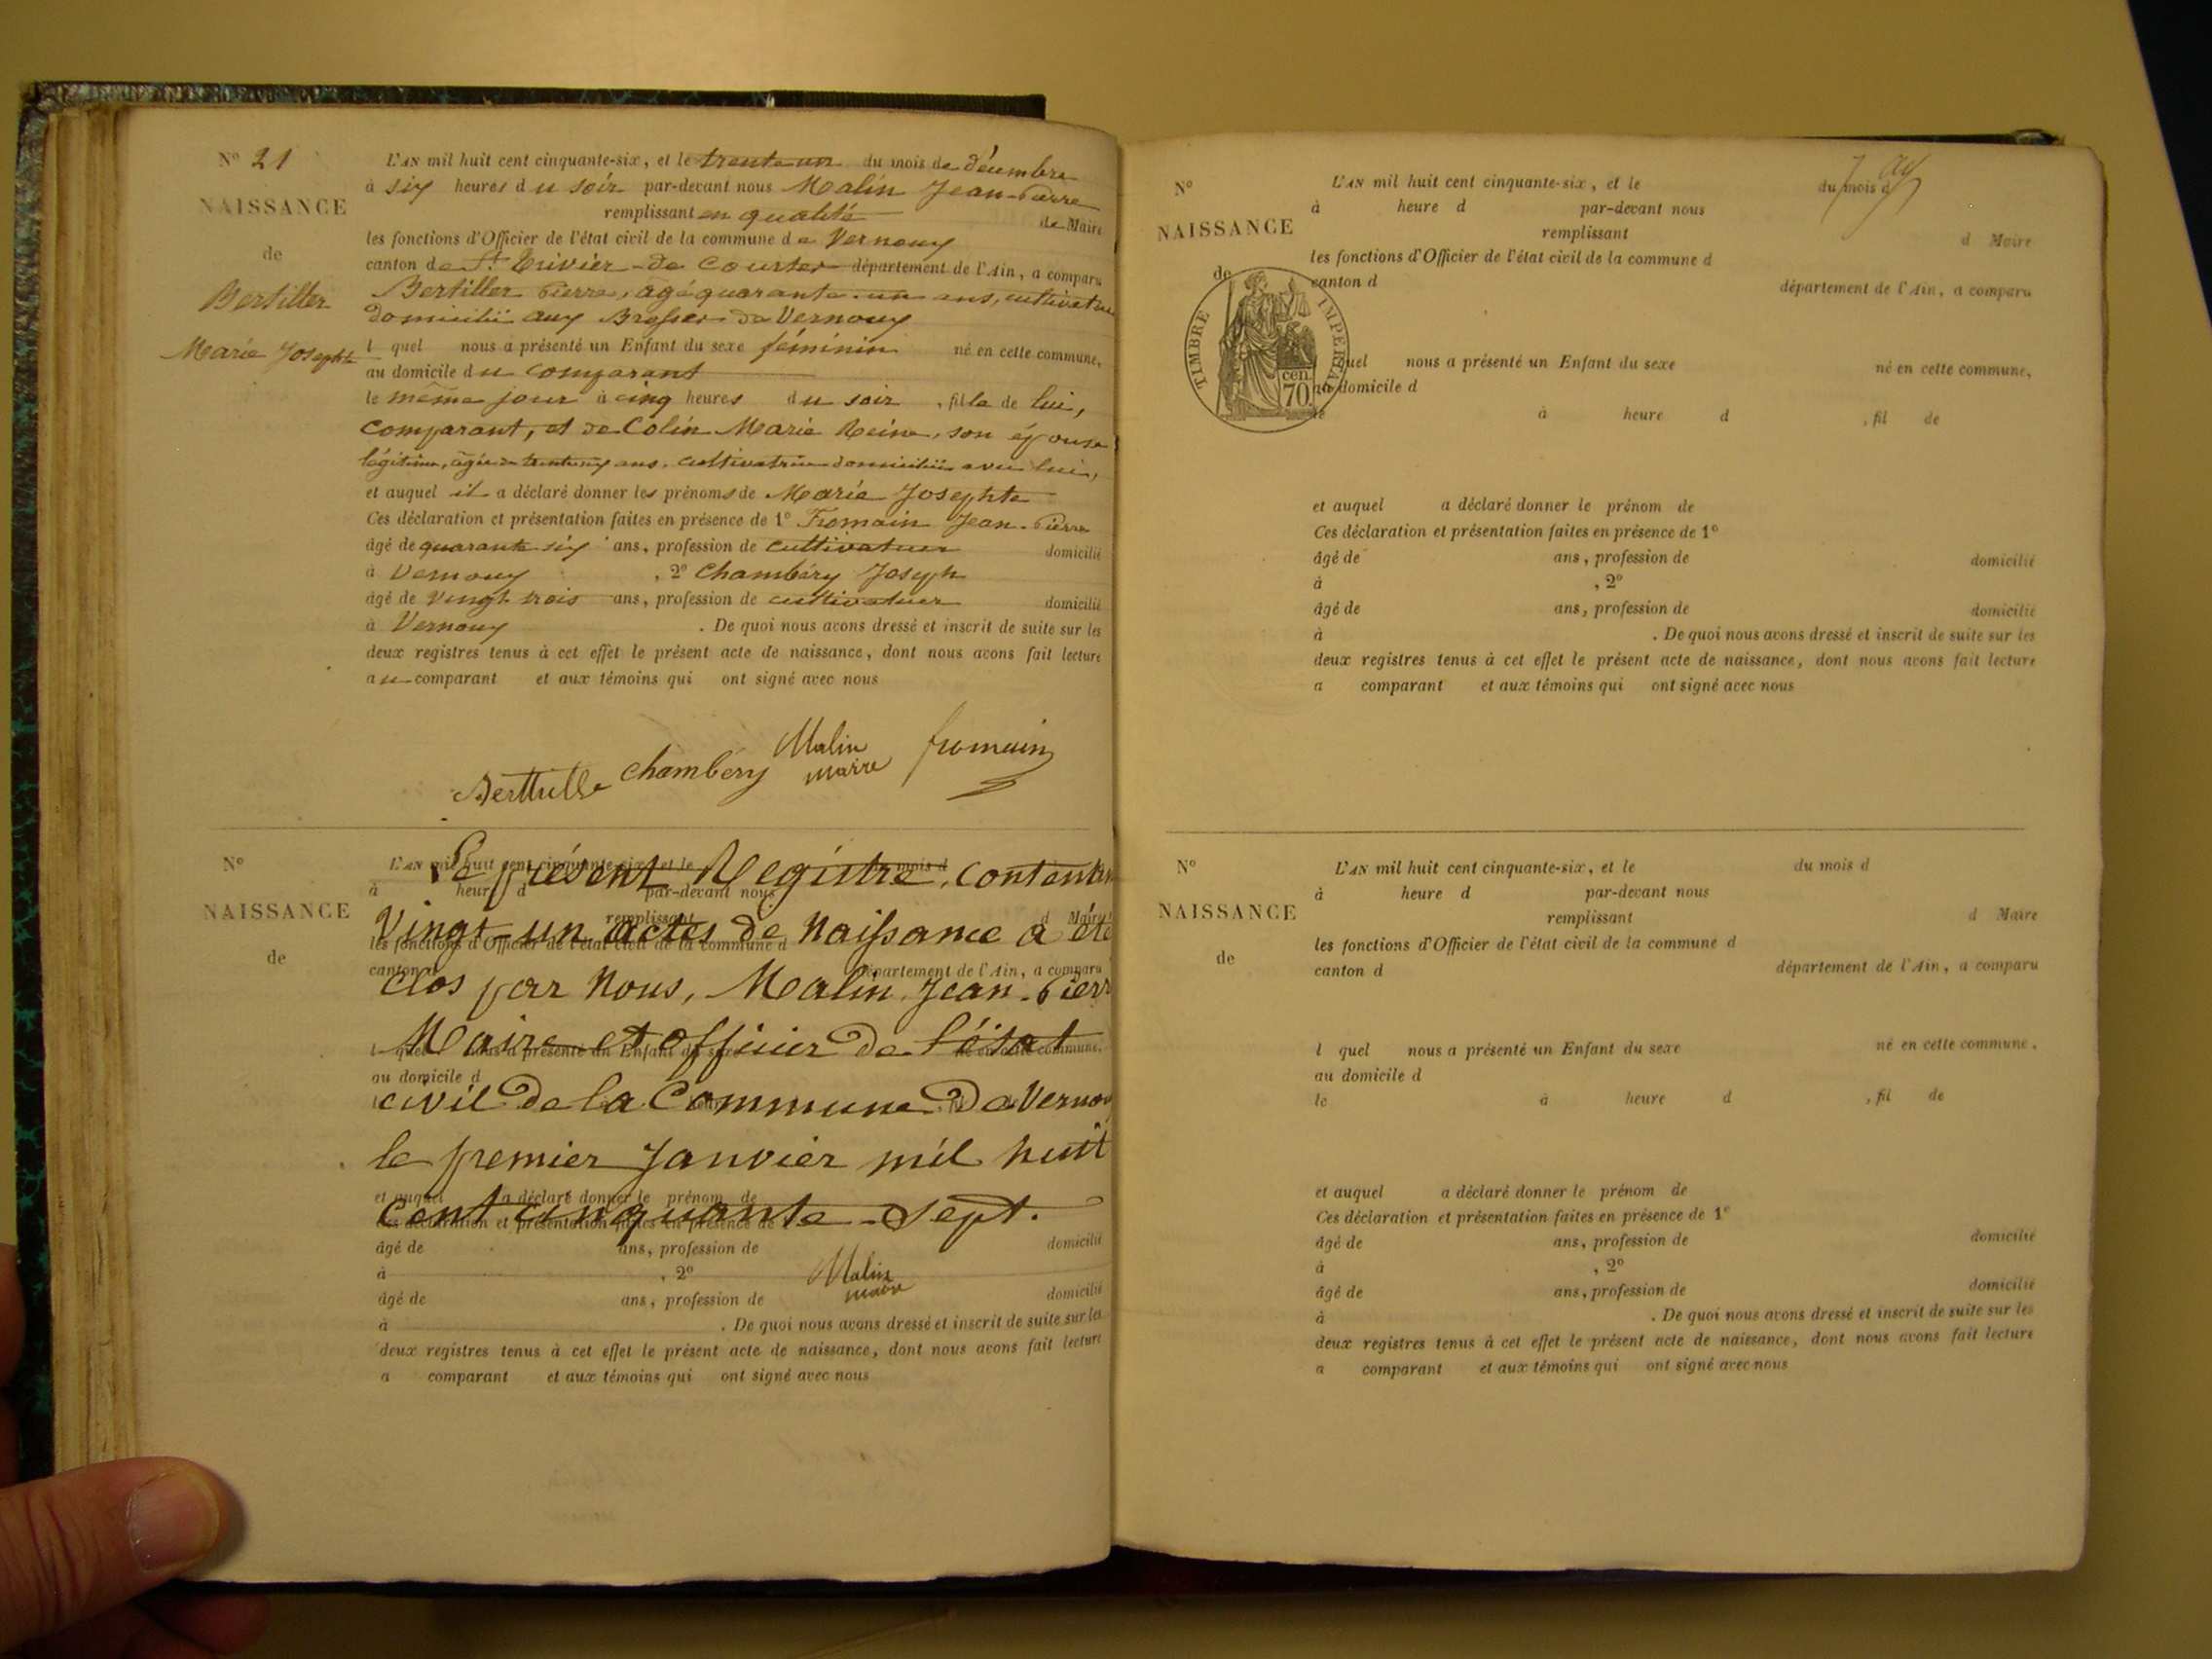 N° 21
NAISSANCE
de
Bertiller
Marie Josephte
L'AN mil huit cent cinquante-six, et le trente un du mois de décembre
à six heures du soir par-devant nous Malin Jean-Pierre
remplissant en qualité de Maire
les fonctions d'Officier de l'état civil de la commune de Vernoux
canton de St Trivier-de Courtes département de l'Ain, a comparu
Bertiller Pierre, agé quarante-un ans, cultivateur
domicilié aux Brosses de Vernoux
l quel nous a présenté un Enfant du sexe féminin né en cette commune,
au domicile du comparant
le même jour à cinq heures du soir, fille de lui,
comparant, et de Colin Marie Reine, son épouse
légitime, agée de ans, cultivatrice domiciliée avec lui,
et auquel il a déclaré donner les prénoms de Marie Josephte
Ces déclaration et présentation faites en présence de 1° Fromain Jean-Pierre
âgé de quarante six ans, profession de cultivateur domicilié
à Vernoux, 2° Chambéry Joseph
âgé de vingt trois ans, profession de cultivateur domicilié
à Vernoux. De quoi nous avons dressé et inscrit de suite sur les
deux registres tenus à cet effet le présent acte de naissance, dont nous avons fait lecture
au comparant et aux témoins qui ont signé avec nous
Malin fromain
chambery maire
N°
NAISSANCE
de
L'AN mil huit cent cinquante-six, et le mois d
Le présent Registre, contenant
à heure d par-devant nous
remplissant d Maire
Vingt-un actes de Naissance a été
les fonctions d'Officier de l'état civil de la commune d
canton d département de l'Ain, a comparu
clos par Nous, Malin Jean-Pierr
Maire et officier de l'état
l quel nous a présenté un Enfant du sexe né en cette commune,
au domicile d
civil de la Commune de Vernou
le premier Janvier mil huit
et auquel a déclaré donner le prénom de
cent cinquante-sept.
Ces déclaration et présentation faites en présence de
âgé de ans, profession de domicilié
à , 2° Malin
maire
âgé de ans, profession de domicilié
à . De quoi nous avons dressé et inscrit de suite sur les
deux registres tenus à cet effet le présent acte de naissance, dont nous avons fait lecture
a comparant et aux témoins qui ont signé avec nous
N°
NAISSANCE
de
TIMBRE IMPERIAL
70 cen.
L'AN mil huit cent cinquante-six, et le du mois d
à heure d par-devant nous
remplissant d Maire
les fonctions d'Officier de l'état civil de la commune d
canton d département de l'Ain, a comparu
quel nous a présenté un Enfant du sexe né en cette commune,
au domicile d
le à heure d , fil de
et auquel a déclaré donner le prénom de
Ces déclaration et présentation faites en présence de 1°
âgé de ans, profession de domicilié
à , 2°
âgé de ans, profession de domicilié
à . De quoi nous avons dressé et inscrit de suite sur les
deux registres tenus à cet effet le présent acte de naissance, dont nous avons fait lecture
a comparant et aux témoins qui ont signé avec nous
N°
NAISSANCE
de
L'AN mil huit cent cinquante-six, et le du mois d
à heure d par-devant nous
remplissant d Maire
les fonctions d'Officier de l'état civil de la commune d
canton d département de l'Ain, a comparu
l quel nous a présenté un Enfant du sexe né en cette commune,
au domicile d
le à heure d , fil de
et auquel a déclaré donner le prénom de
Ces déclaration et présentation faites en présence de 1°
âgé de ans, profession de domicilié
à , 2°
âgé de ans, profession de domicilié
à . De quoi nous avons dressé et inscrit de suite sur les
deux registres tenus à cet effet le présent acte de naissance, dont nous avons fait lecture
a comparant et aux témoins qui ont signé avec nous